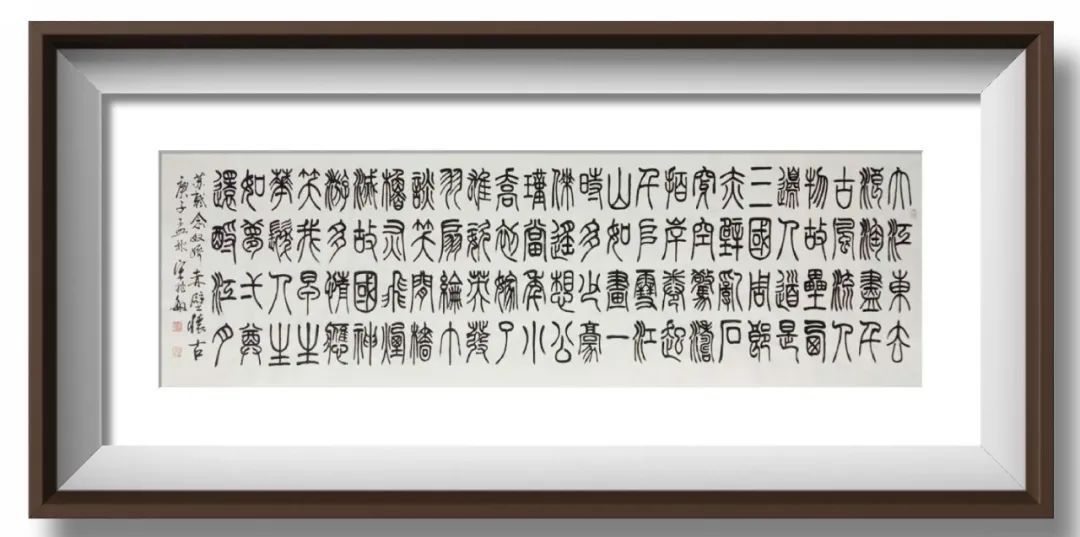 大江東去
浪淘盡千
古風流人
物故壘西
邊人道是
三國周郎
赤壁亂石
穿空驚濤
拍岸卷起
千堆雪江
山如畫一
時多少豪
傑遙想公
瑾當年小
喬初嫁了
雄姿英發
羽扇綸巾
談笑間檣
櫓灰飛煙
滅故國神
遊多情應
笑我早生
華髮人生
如夢一尊
還酹江月
蘇軾念奴嬌赤壁懷古
庚子孟秋